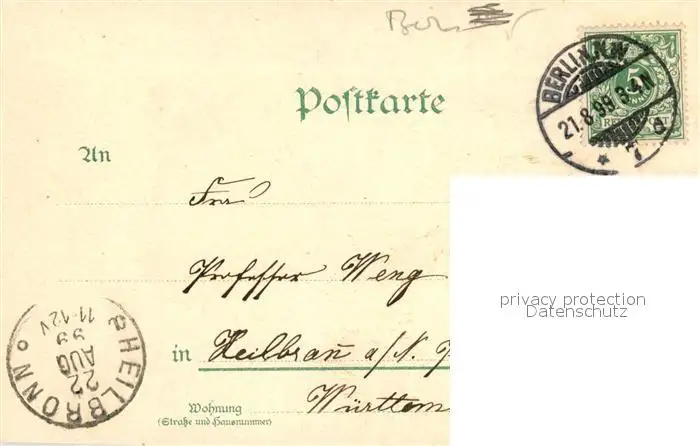 BERLIN N.W.
21.8.99. 3-4N.
7 d
5
Postkarte
An
Frau
Professor Weng
in Heilbronn a/N.
Württem
Wohnung
(Straße und Hausnummer)
HEILBRONN
22
AUG
99
11-12V
privacy protection
Datenschutz